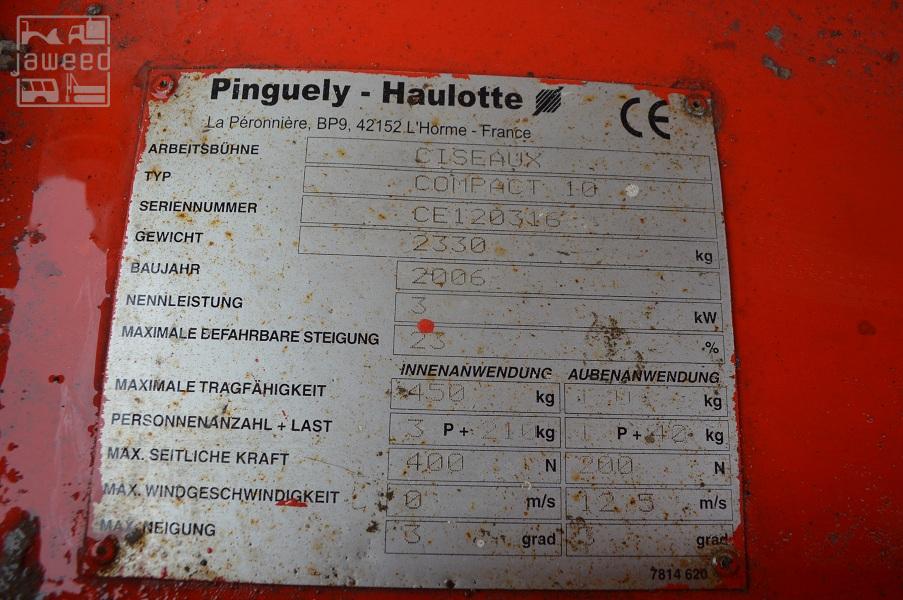 jaweed
Pinguely - Haulotte
CE
La Péronnière, BP9, 42152 L'Horme - France
ARBEITSBÜHNE CISEAUX
TYP COMPACT 10
SERIENNUMMER CE120316
GEWICHT 2330 kg
BAUJAHR 2006
NENNLEISTUNG 3 kW
MAXIMALE BEFAHRBARE STEIGUNG 23 %
INNENANWENDUNG AUBENANWENDUNG
MAXIMALE TRAGFÄHIGKEIT 450 kg kg
PERSONNENANZAHL + LAST 3 P + 210 kg 1 P + 40 kg
MAX. SEITLICHE KRAFT 400 N 200 N
MAX. WINDGESCHWINDIGKEIT 0 m/s 12.5 m/s
MAX. NEIGUNG 3 grad 3 grad
7814 620